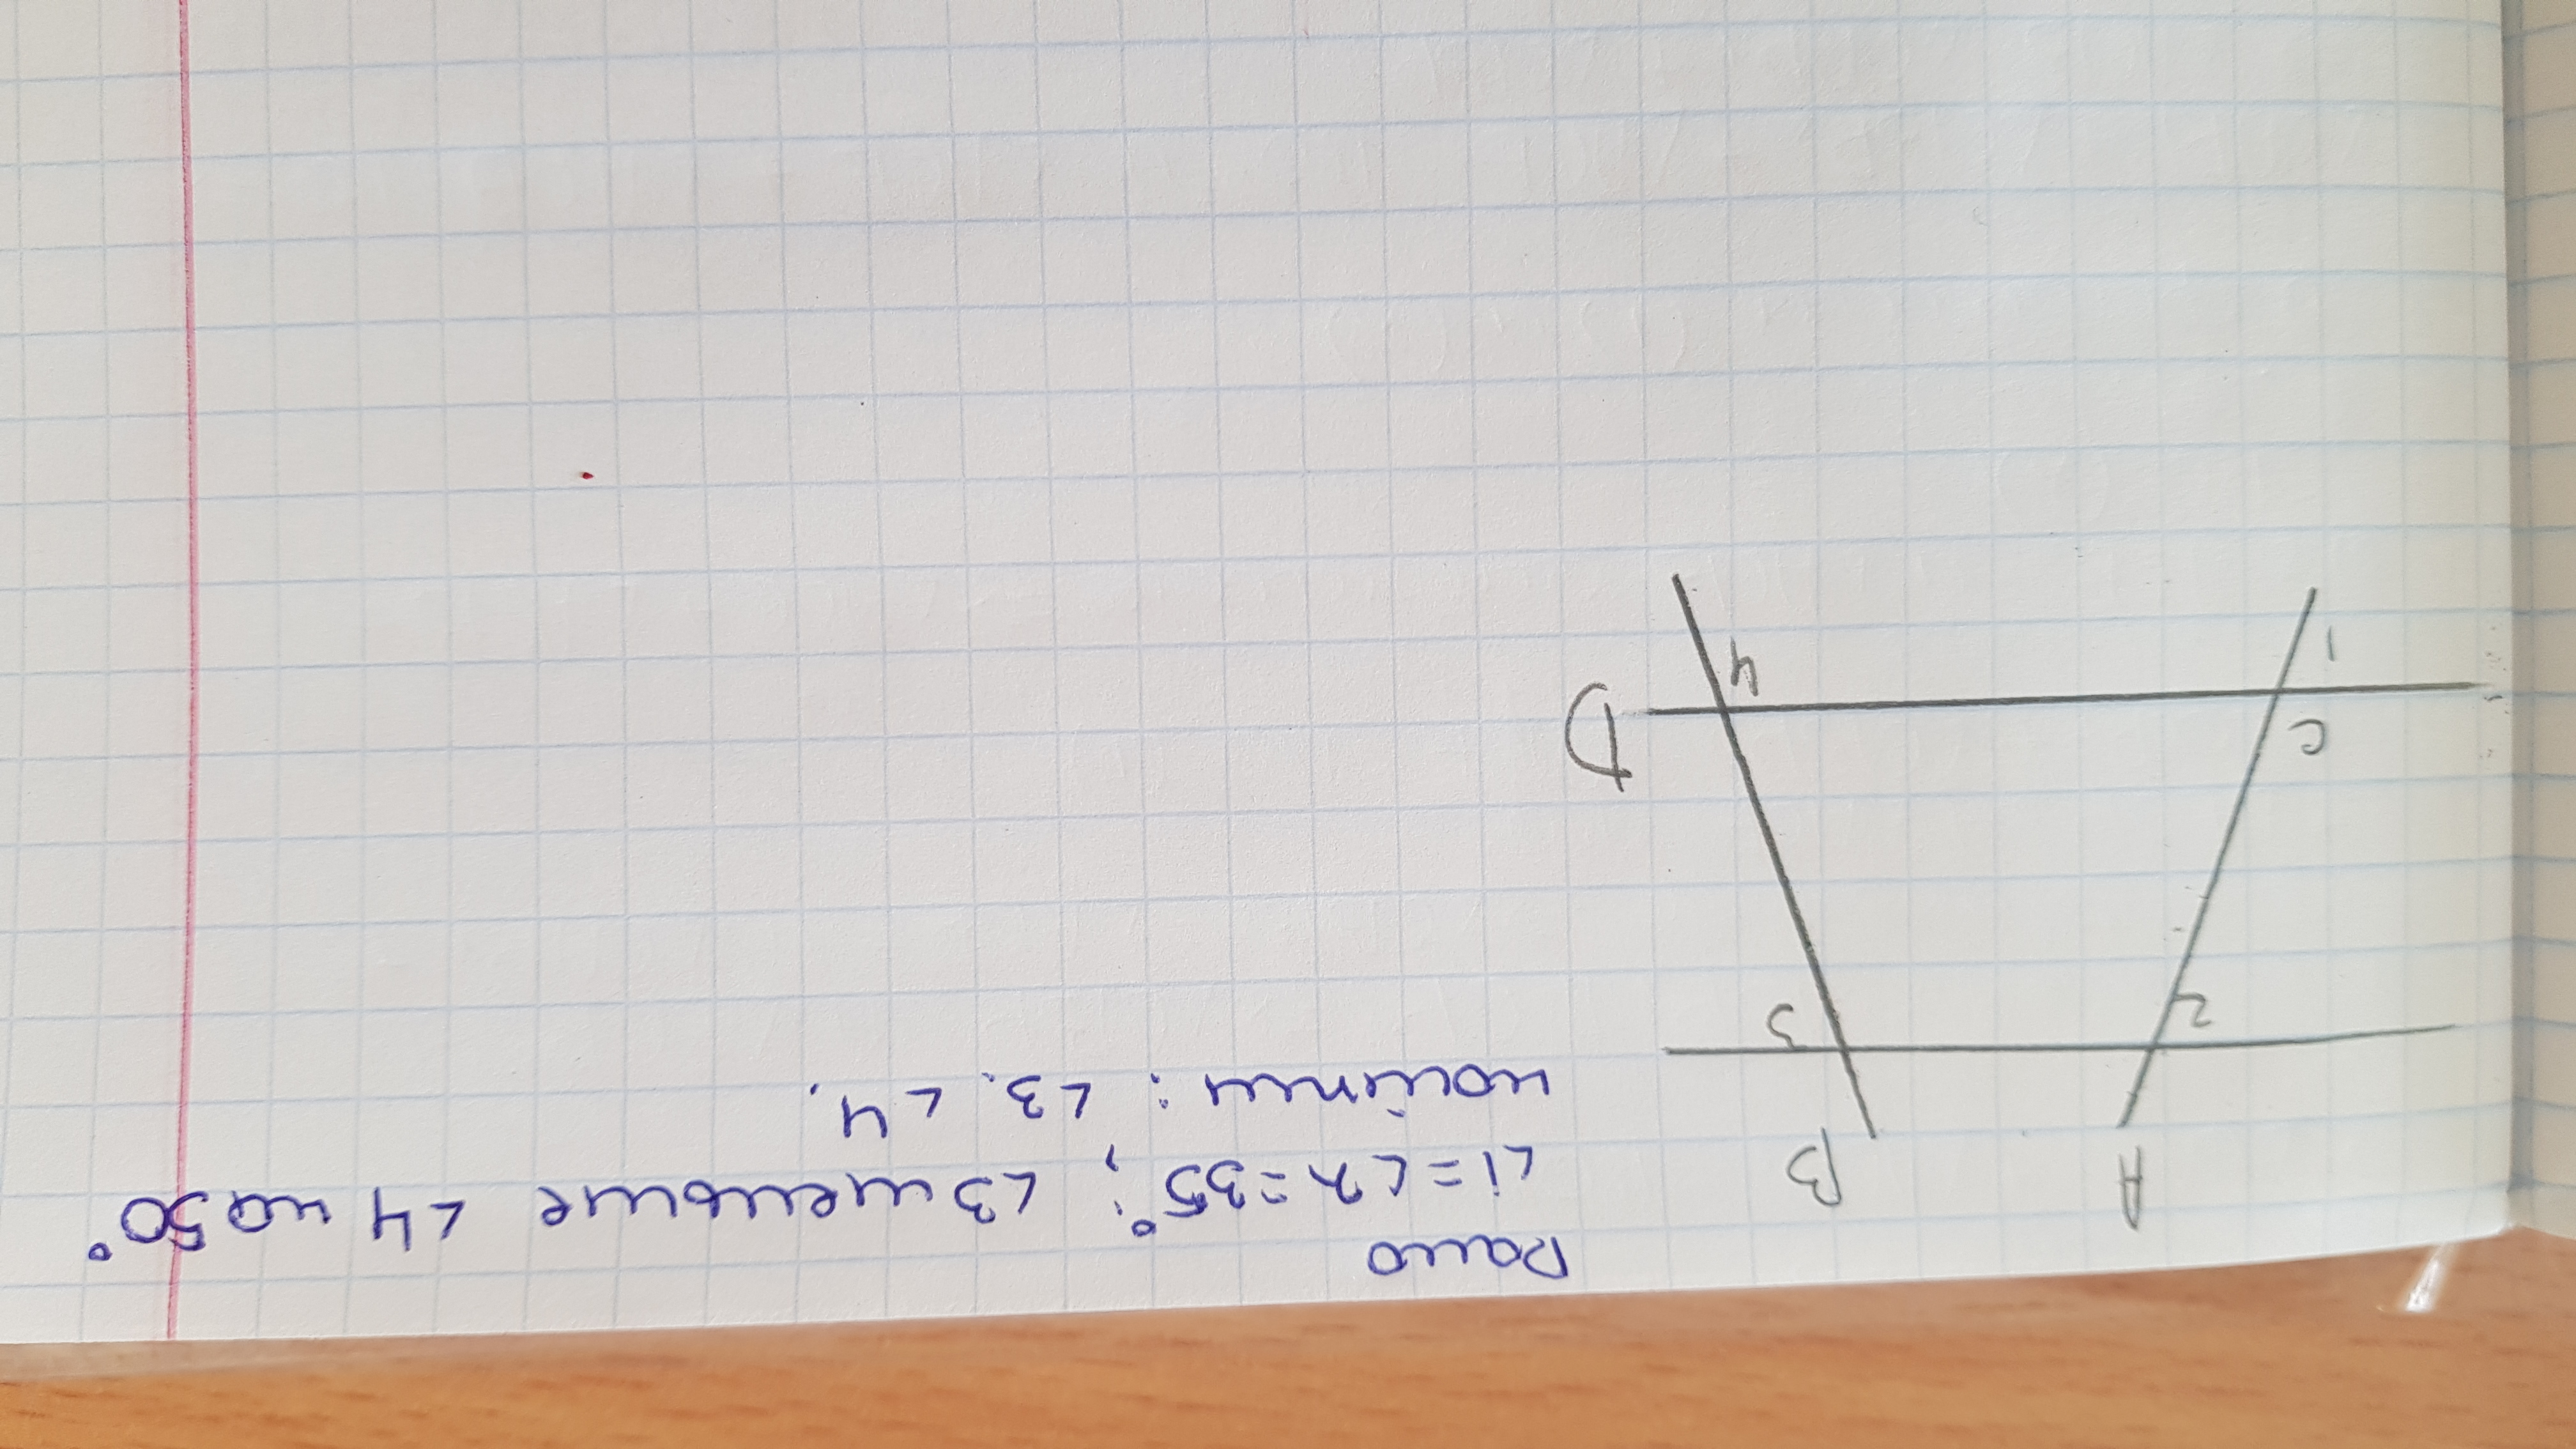 Дано
∠1=∠2=35°; ∠3 меньше ∠4 на 50°
найти: ∠3. ∠4.
A
B
2
3
C
D
1
4